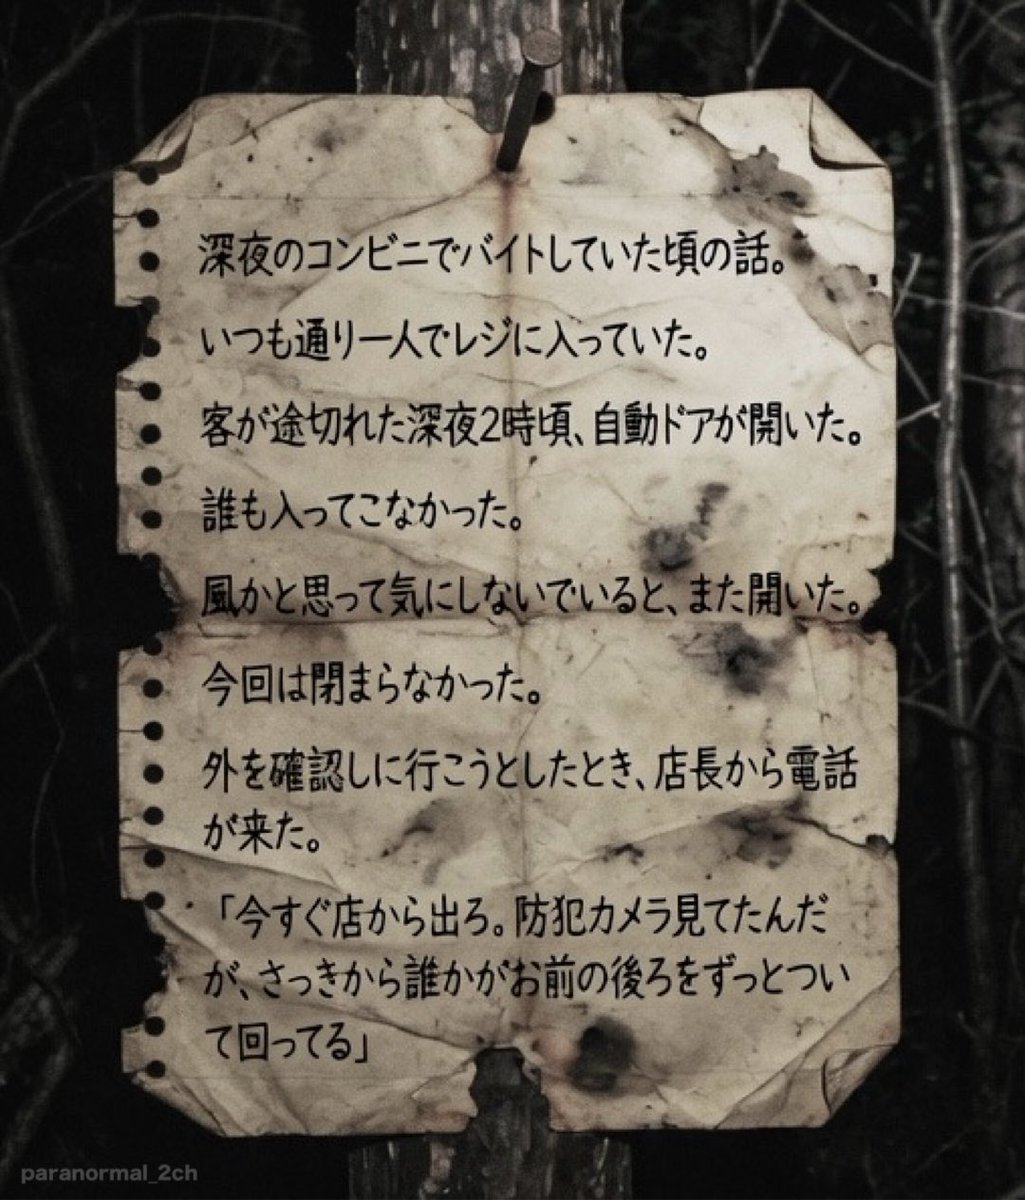 深夜のコンビニでバイトしていた頃の話。
いつも通り一人でレジに入っていた。
客が途切れた深夜2時頃、自動ドアが開いた。
誰も入ってこなかった。
風かと思って気にしないでいると、また開いた。
今回は閉まらなかった。
外を確認しに行こうとしたとき、店長から電話
が来た。
「今すぐ店から出ろ。防犯カメラ見てたんだ
が、さっきから誰かがお前の後ろをずっとつい
て回ってる」
paranormal_2ch